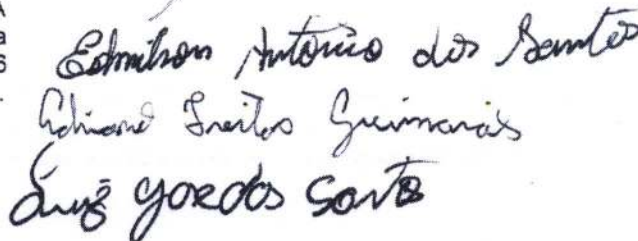 A
a
6
Edmilson Antonio dos Santos
Freitas Guimarães
Luiz dos Santos